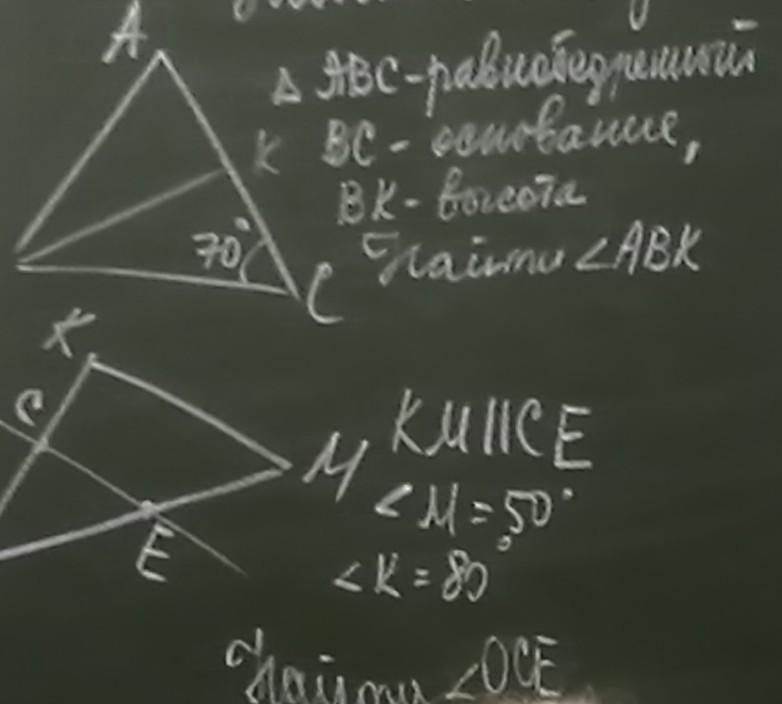 A
△ ABC-равнобедренный
K BC - основание,
BK - высота
70° Найти ∠ABK
C
K
C
M KM||CE
∠M = 50°
E
∠K = 80°
Найти ∠OCE